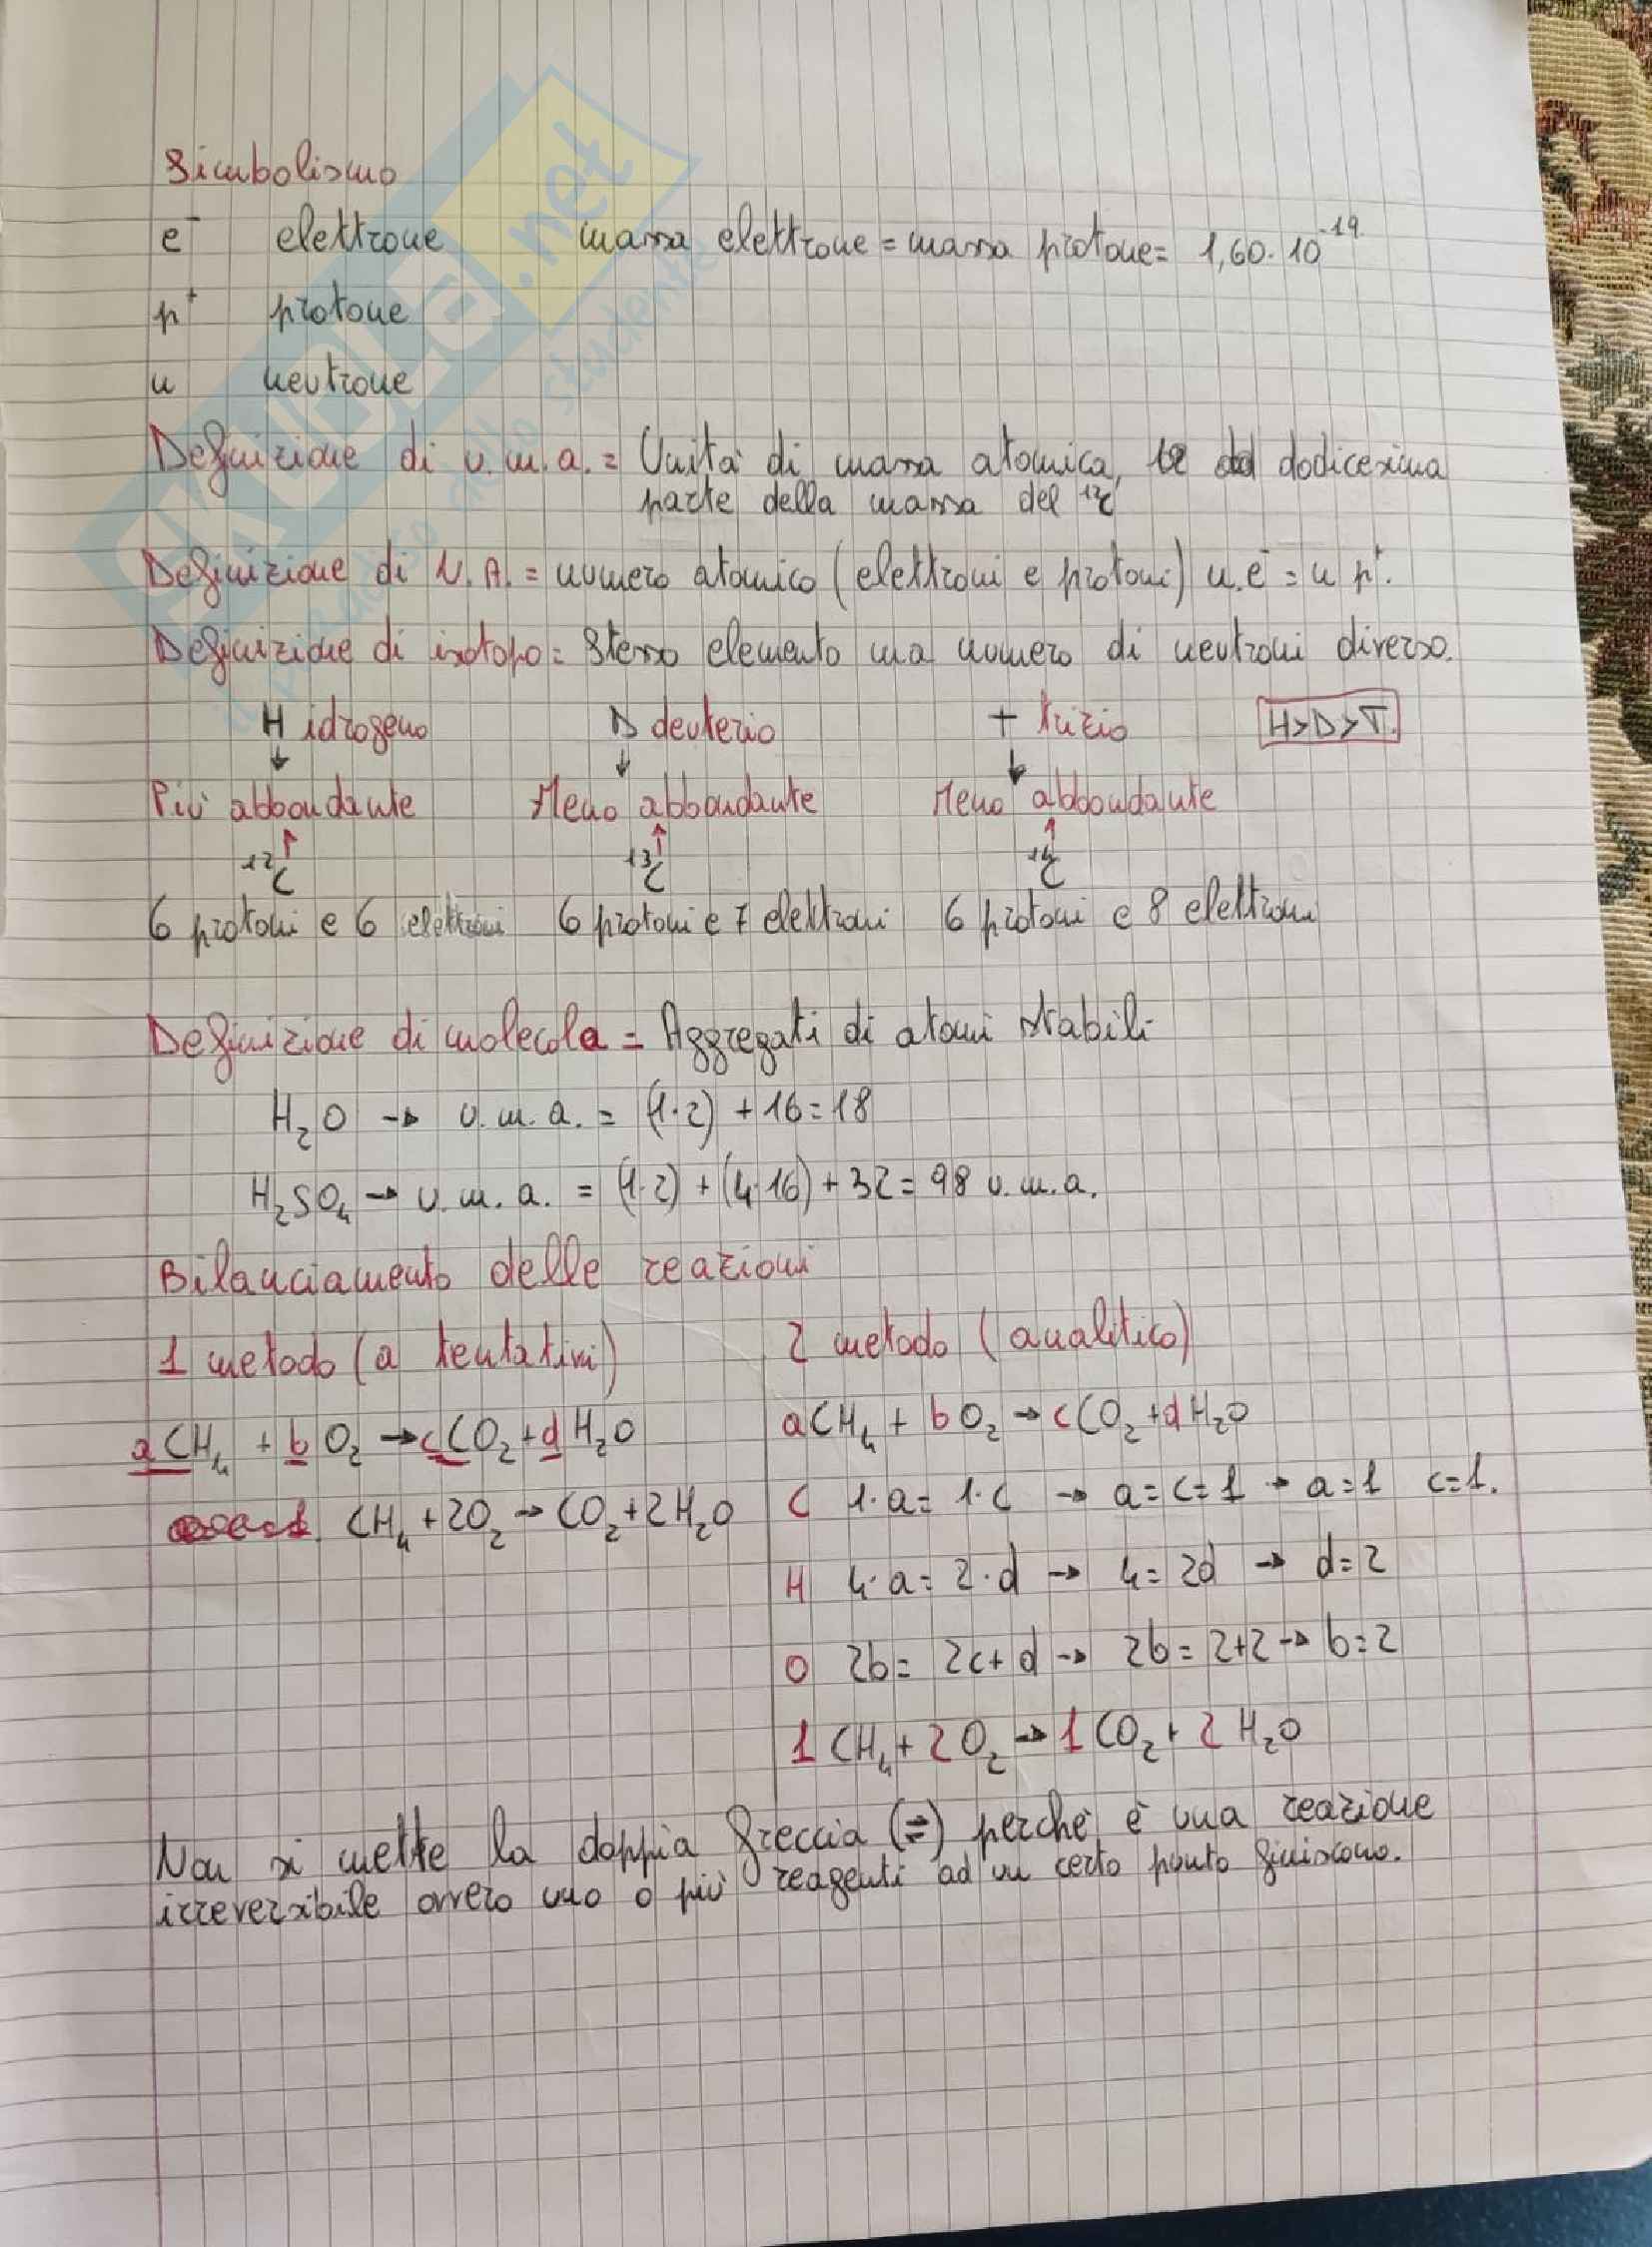 Simbolismo
e⁻ elettrone massa elettrone = massa protone = 1,60·10⁻¹⁹
p⁺ protone
n neutrone
Definizione di u.m.a. = Unità di massa atomica, dodicesima
parte della massa del ¹²C
Definizione di N.A. = numero atomico (elettroni e protoni) n.e⁻ = n p⁺.
Definizione di isotopo = stesso elemento ma numero di neutroni diverso.
H idrogeno D deuterio T trizio H>D>T.
↓ ↓ ↓
Più abbondante Meno abbondante Meno abbondante
↑ ↑ ↑
¹²C ¹³C ¹⁴C
6 protoni e 6 elettroni 6 protoni e 7 elettroni 6 protoni e 8 elettroni
Definizione di molecola = Aggregati di atomi stabili
H₂O → u.m.a. = (1·2) + 16 = 18
H₂SO₄ → u.m.a. = (1·2) + (4·16) + 32 = 98 u.m.a.
Bilanciamento delle reazioni
1 metodo (a tentativi) 2 metodo (analitico)
aCH₄ + bO₂ → cCO₂ + dH₂O aCH₄ + bO₂ → cCO₂ + dH₂O
CH₄ + 2O₂ → CO₂ + 2H₂O C 1·a = 1·c → a = c = 1 → a = 1 c = 1.
H 4·a = 2·d → 4 = 2d → d = 2
O 2b = 2c + d → 2b = 2+2 → b = 2
1CH₄ + 2O₂ → 1CO₂ + 2H₂O
Non si mette la doppia freccia (⇌) perché è una reazione
irreversibile ovvero uno o più reagenti ad un certo punto finiscono.
SKUOLA.net
il paradiso dello studente